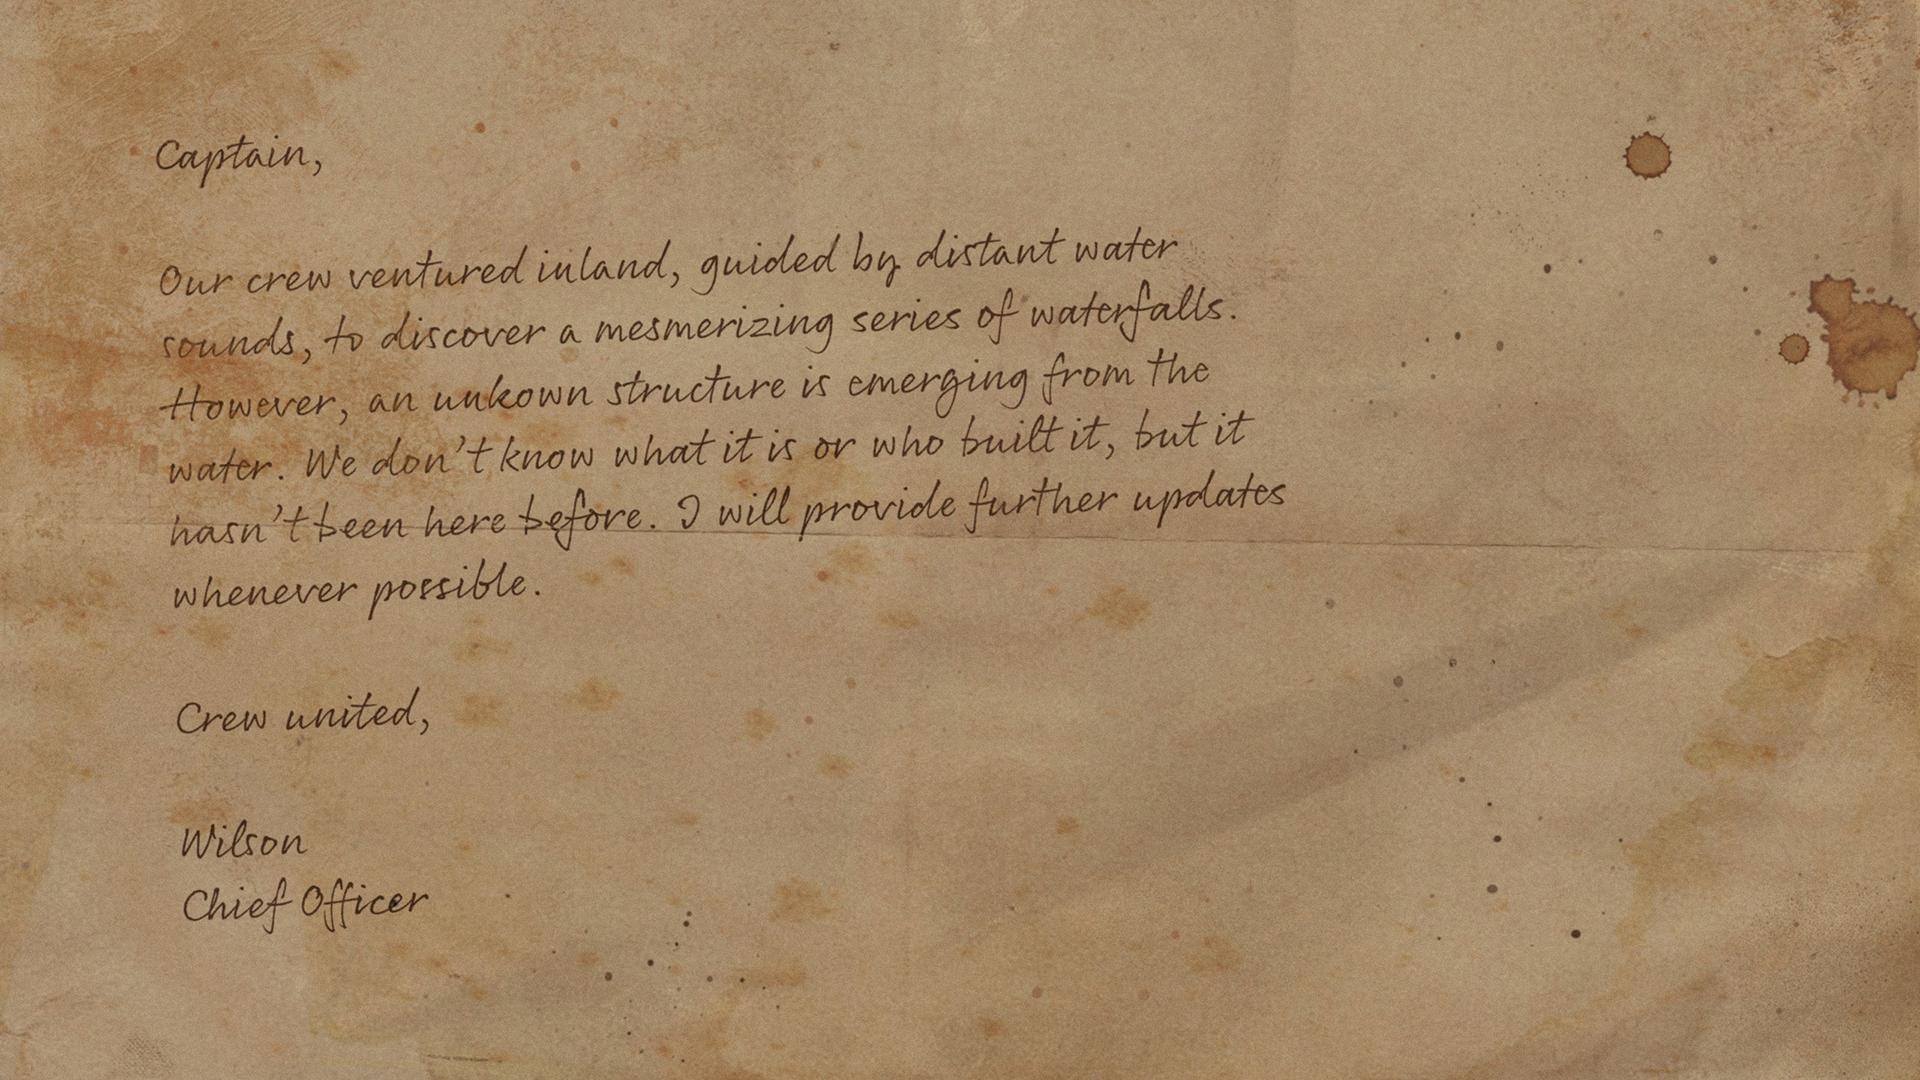 Captain,
Our crew ventured inland, guided by distant water
sounds, to discover a mesmerizing series of waterfalls.
However, an unkown structure is emerging from the
water. We don't know what it is or who built it, but it
hasn't been here before. I will provide further updates
whenever possible.
Crew united,
Wilson
Chief Officer